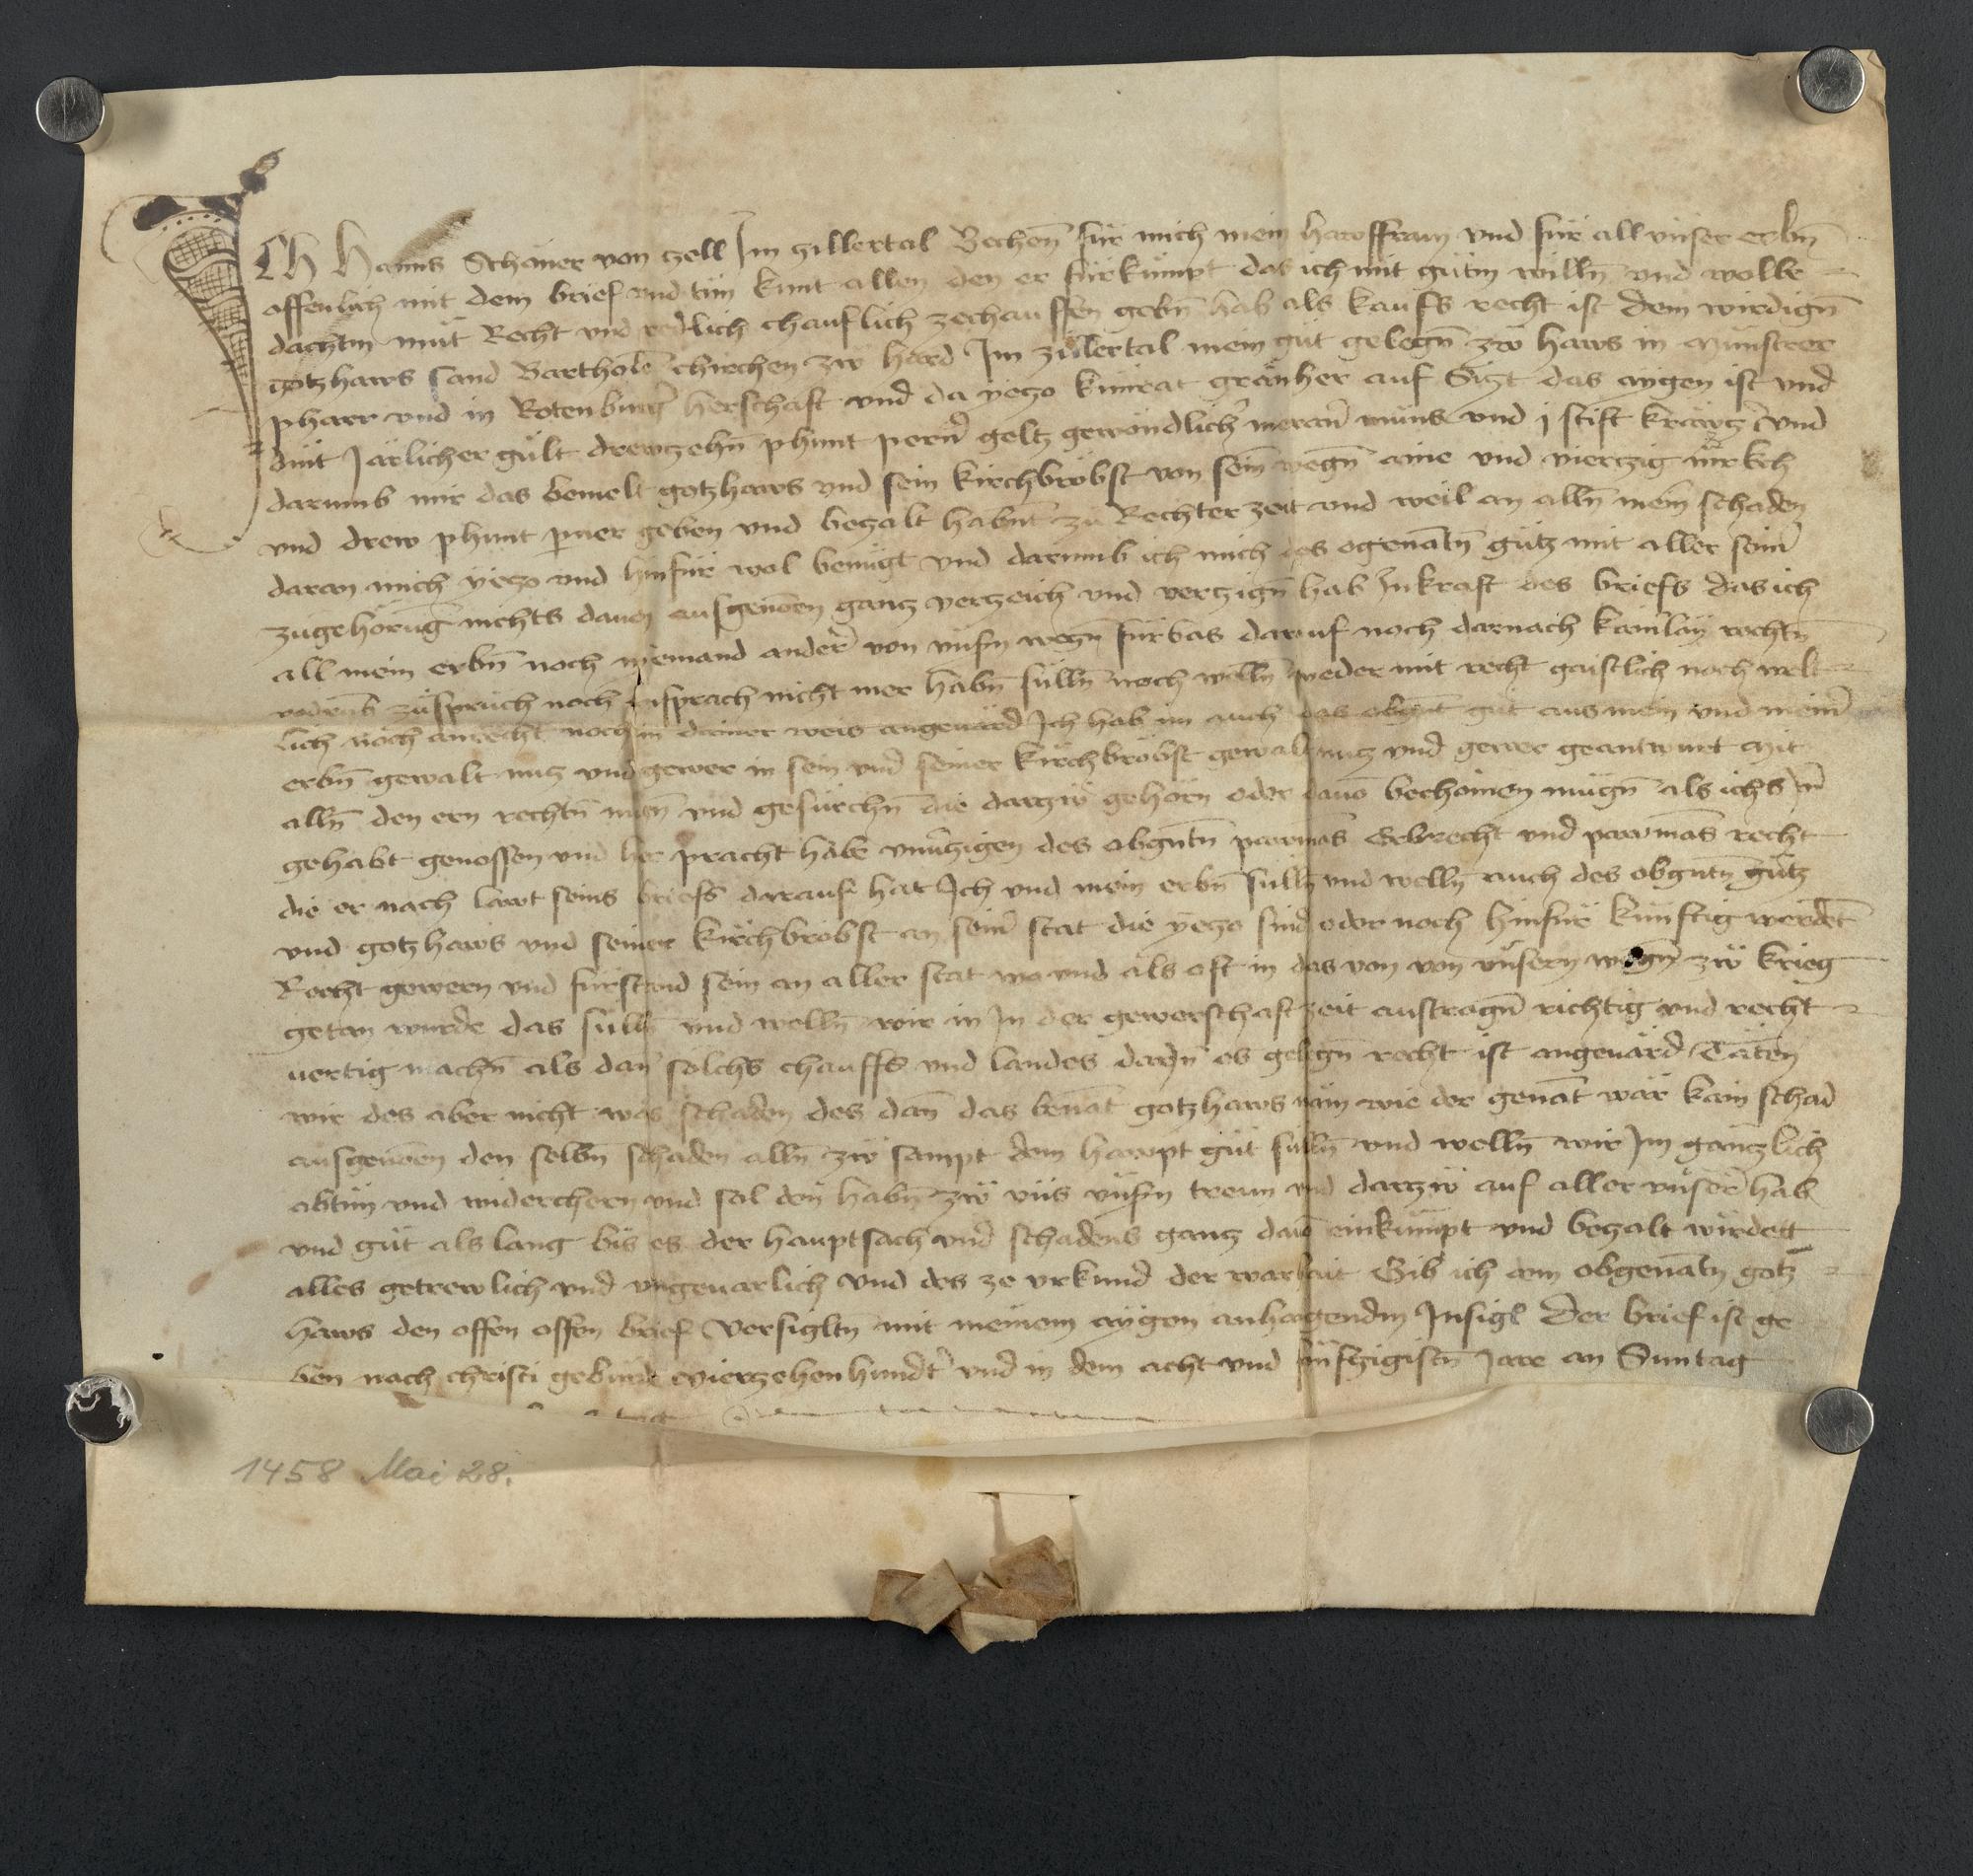 Ich Hanns Schöner von zell Im zillertal Bechen̄ für mich mein hawsfraw vnd für all vnser erbn̄
offenlich mit dem brief vnd tün kunt allen den er fürkümpt das ich mit gütm willn̄ vnd wolbe
dachtm müt Recht vnd redlich chauflich zechauffen gebn̄ hab als kaufs recht ist dem wirdign̄
gotzhaws sand Bartholome chirchen zw hard Im zillertal mein güt gelegn̄ zw haws in Münstrer
pharr vnd in Rotenburger herschaft vnd da yezo künrat gränher auf Sizt das aygen ist vnd
dint Järlicher gült drewzehn̄ phunt perner geltz gewöndlicher meraner müns vnd j stift kräwzer vnd
darumb mir das bemelt gotzhaws vnd sein kirchbröbst von sein̄ wegn̄ aine vnd vierzig mrkch
vnd drew phunt perner geben vnd bezalt habn̄t zü Rechter zeit vnd weil an alln̄ mein schaden
daran mich yezo vnd hinfür wol benügt vnd darumb ich mich des ogenātn̄ gütz mit aller seiner
zugehörūg nichts dauon ausgenōen ganz verzeich vnd verzign̄ hab Inkraft des briefs das ich
all mein erbn̄ noch niemand ander von vnsn̄ wegn̄ fürbas darauf noch darnach kainlay rechtn̄
vodrūg züsprüch noch ansprach nicht mer habn̄ sülln̄ noch welln̄ weder mit recht gaistlich noch welt
lich noch anrecht noch in dainer weis angeuärd Ich hab im auch das obgn̄t güt aus mein vnd meiner
erbn̄ gewalt nuz vnd gewer in sein vnd seiner kirchbröbst gewalt nuz vnd gewer geantwurt Mit
alln̄ den ern rechtn̄ nuzn̄ vnd gesüchn̄ die darzw gehörn oder dauō bechömen mügn̄ als ichs Inn̄
gehabt genossen vnd her pracht habe vnuerzigen des obgntn̄ pawmās Erbrecht vnd pawmās recht
die er nach lawt seins briefs darauf hat Ich vnd mein erbn̄ sülln̄ vnd welln̄ auch des obgntn̄ gütz
vnd gotzhaws vnd seiner kirchbröbst an seiner stat die yezo sind oder noch hinfür künftig werdēt
Recht gewern vnd fürstand sein an aller stat wo vnd als oft in das von von vnsern wegn̄ zw krieg
getan wurde das sülln̄ vnd welln̄ wir in In der gewerschaft zeit austragn̄ richtig vnd recht
uertig machn̄ als dan̄ sölchs chauffs vnd landes darJn̄ es gelegn̄ recht ist angeuärd Täten
wir des aber nicht was schaden des dan̄ das benāt gotzhaws näm wie der genāt wär kain schad
ausgenōen den selbn̄ schaden alln̄ zw sampt dem hawpt güt sülln̄ vnd welln̄ wir Im gänzlich
abtün vnd widerchern vnd sol den habn̄ zw vns vnsn̄ trewn vnd darzw auf aller vnser hab
vnd güt als lang bis es der hauptsach vnd schadens ganz dauō einkümpt vnd bezalt wirdett
alles getrewlich vnd vngeuarlich Vnd des ze vrkund der warhait Gib ich am obgenātn̄ gotz
haws den offen offen brief Versigltn̄ mit meinem aygen anhangendm Insigl Der brief ist ge
ben nach christi geburde vierzehenhundert vnd in dem acht vnd fünfzigistn̄ Jare an Suntag
1458 Mai 28.